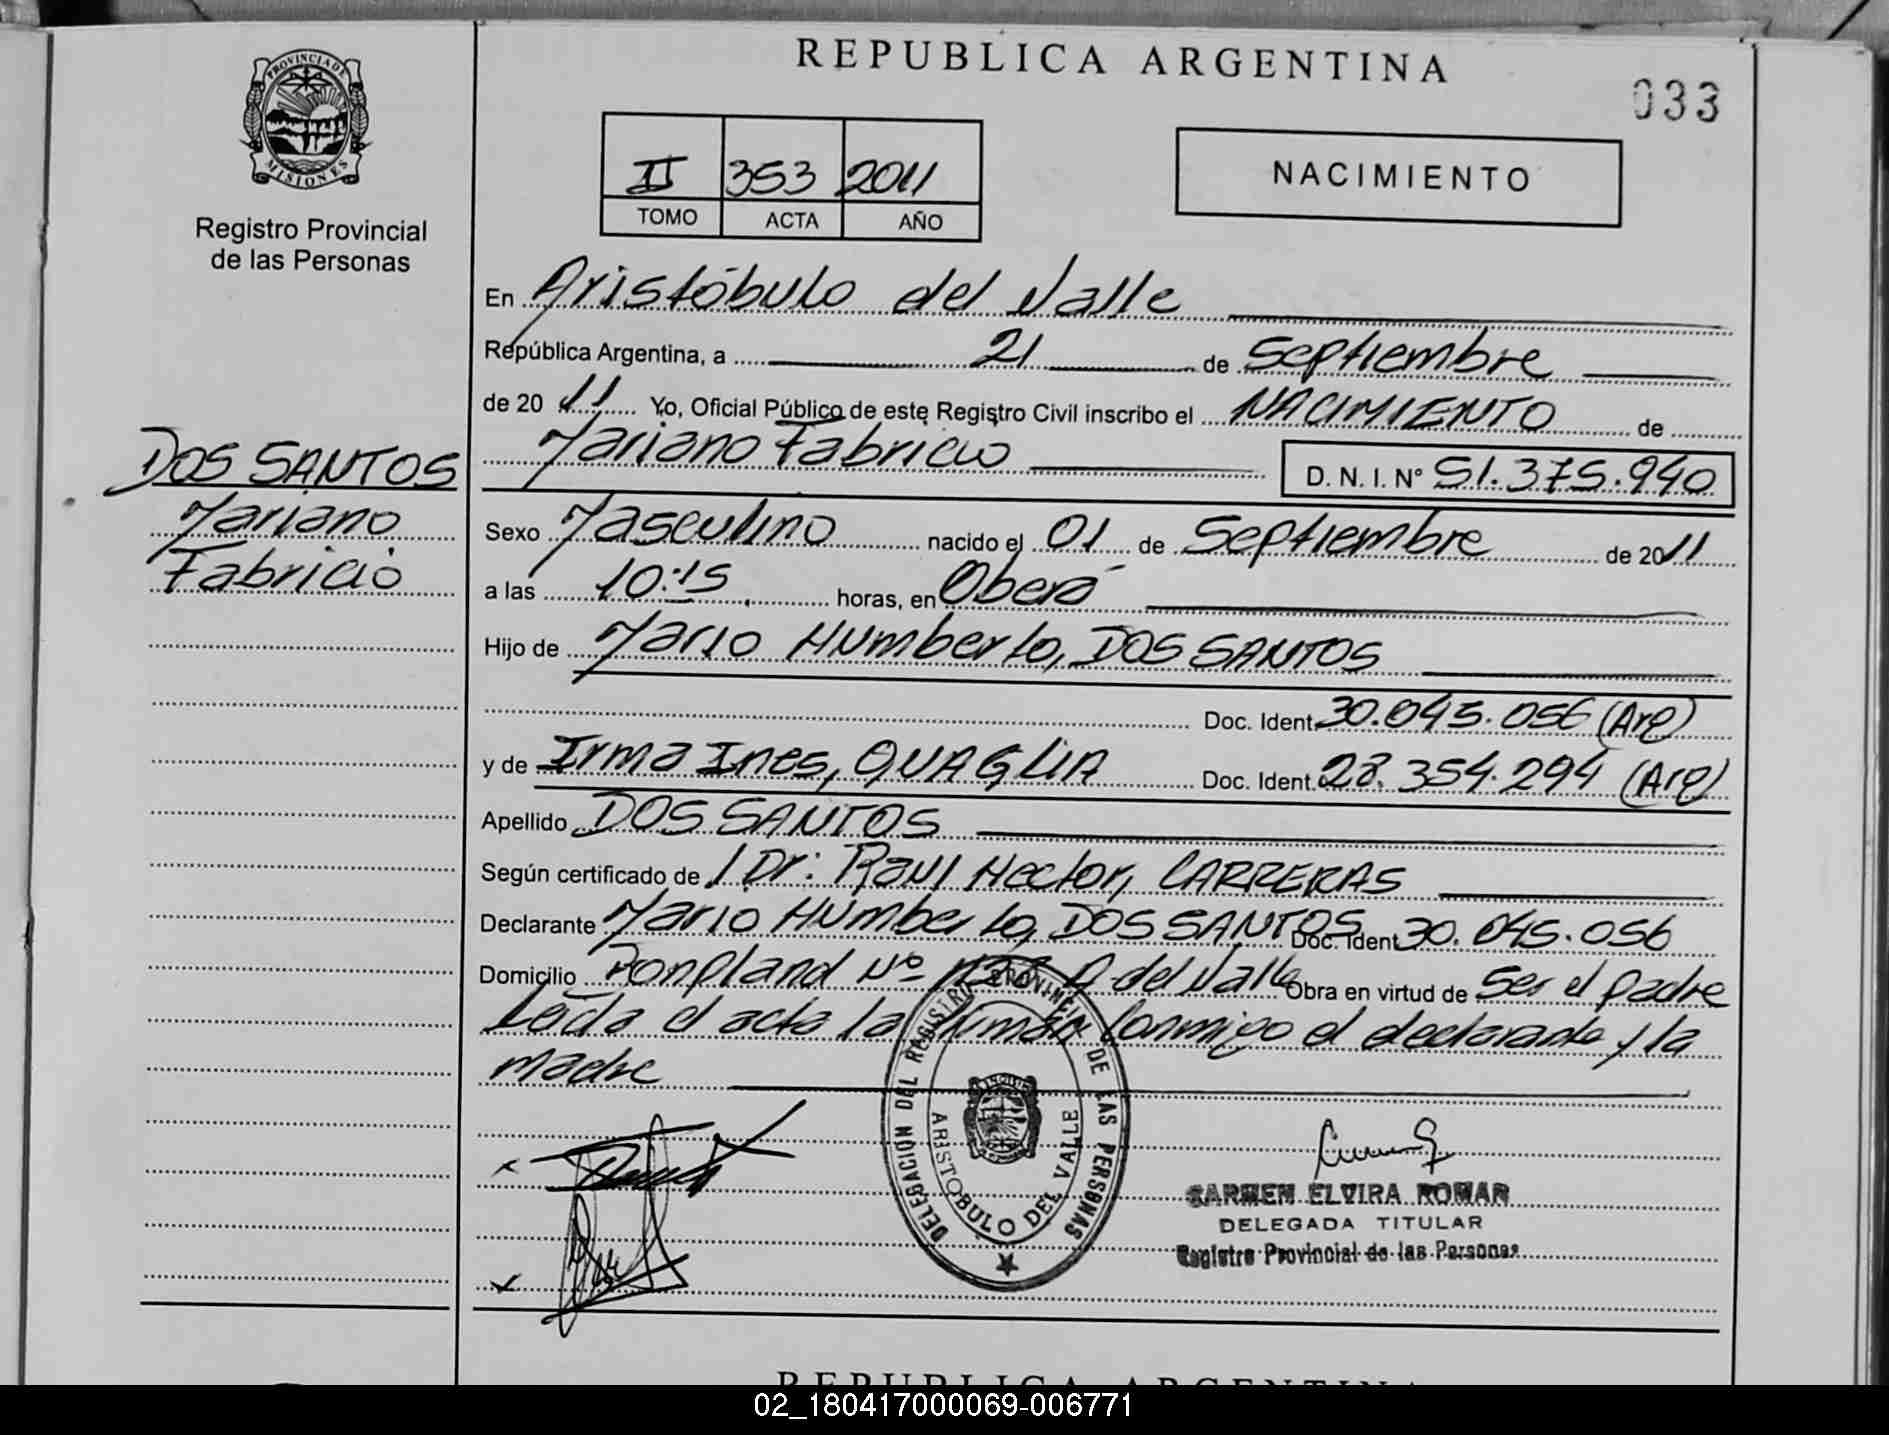 REPUBLICA ARGENTINA
033
PROVINCIA DE
MISIONES
Registro Provincial
de las Personas
II 353 2011
TOMO ACTA AÑO
NACIMIENTO
En Aristóbulo del Valle
República Argentina, a 21 de Septiembre
de 20 11 Yo, Oficial Público de este Registro Civil inscribo el NACIMIENTO de
Mariano Fabricio D. N. I. Nº 51.375.940
DOS SANTOS
Mariano
Fabricio
Sexo Masculino nacido el 01 de Septiembre de 2011
a las 10:15 horas, en Oberá
Hijo de Mario Humberto, DOS SANTOS
Doc. Ident. 30.045.056 (Arg)
y de Irma Ines, QUAGLIA Doc. Ident. 28.354.294 (Arg)
Apellido DOS SANTOS
Según certificado de Dr: Raul Hector, CARRERAS
Declarante Mario Humberto, DOS SANTOS Doc. Ident 30.045.056
Domicilio Bonpland Nº A. del Valle Obra en virtud de Ser el padre
Leída el acta la firman conmigo el declarante y la
madre
DELEGACION DEL REGISTRO PROVINCIAL DE LAS PERSONAS
ARISTOBULO DEL VALLE
CARMEN ELVIRA ROMAN
DELEGADA TITULAR
Registro Provincial de las Personas
REPUBLICA ARGENTINA
02_180417000069-006771